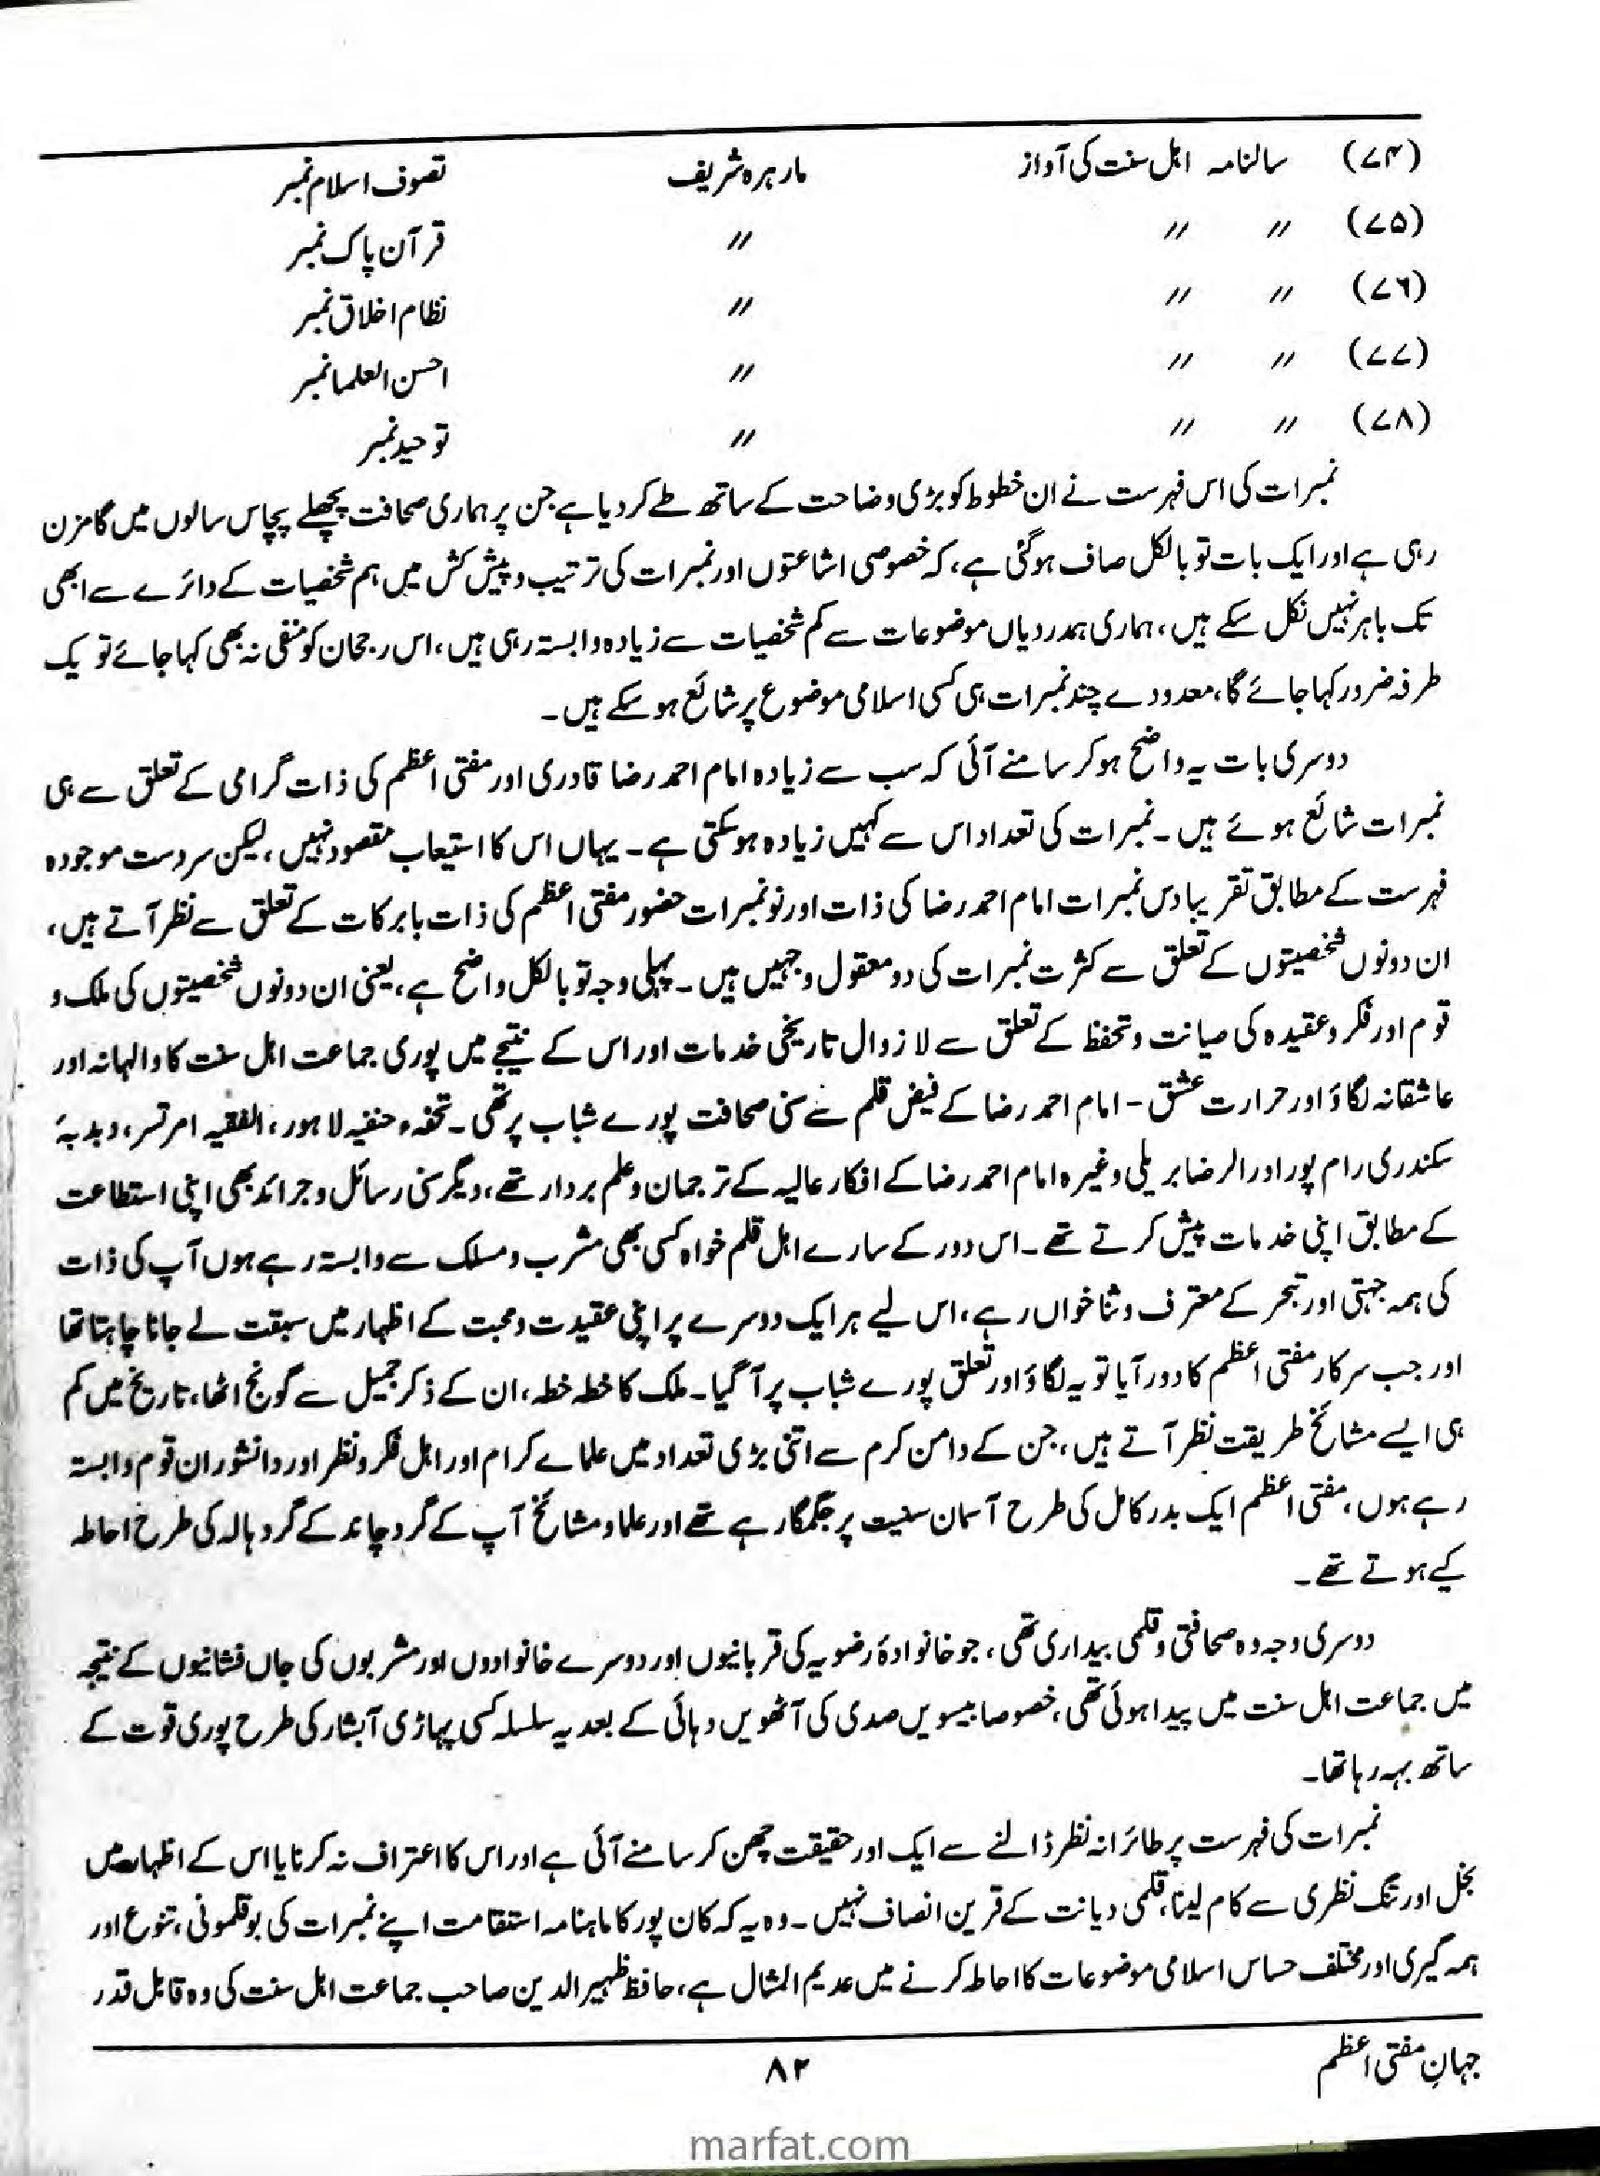 (۷۴) سالنامہ اہل سنت کی آواز مارہرہ شریف تصوف اسلام نمبر
(۷۵) 〃 〃 〃 قرآن پاک نمبر
(۷۶) 〃 〃 〃 نظام اخلاق نمبر
(۷۷) 〃 〃 〃 احسن العلما نمبر
(۷۸) 〃 〃 〃 توحید نمبر
نمبرات کی اس فہرست نے ان خطوط کو بڑی وضاحت کے ساتھ طے کر دیا ہے جن پر ہماری صحافت پچھلے پچاس سالوں میں گامزن
رہی ہے اور ایک بات تو بالکل صاف ہو گئی ہے، کہ خصوصی اشاعتوں اور نمبرات کی ترتیب و پیش کش میں ہم شخصیات کے دائرے سے ابھی
تک باہر نہیں نکل سکے ہیں، ہماری ہمدردیاں موضوعات سے کم شخصیات سے زیادہ وابستہ رہی ہیں، اس رجحان کو منفی نہ بھی کہا جائے تو یک
طرفہ ضرور کہا جائے گا، معدودے چند نمبرات ہی کسی اسلامی موضوع پر شائع ہو سکے ہیں۔
دوسری بات یہ واضح ہو کر سامنے آئی کہ سب سے زیادہ امام احمد رضا قادری اور مفتی اعظم کی ذات گرامی کے تعلق سے ہی
نمبرات شائع ہوئے ہیں۔ نمبرات کی تعداد اس سے کہیں زیادہ ہو سکتی ہے۔ یہاں اس کا استیعاب مقصود نہیں، لیکن سردست موجودہ
فہرست کے مطابق تقریبا دس نمبرات امام احمد رضا کی ذات اور نو نمبرات حضور مفتی اعظم کی ذات بابرکات کے تعلق سے نظر آتے ہیں،
ان دونوں شخصیتوں کے تعلق سے کثرت نمبرات کی دو معقول وجہیں ہیں۔ پہلی وجہ تو بالکل واضح ہے، یعنی ان دونوں شخصیتوں کی ملک و
قوم اور فکر و عقیدہ کی صیانت و تحفظ کے تعلق سے لازوال تاریخی خدمات اور اس کے نتیجے میں پوری جماعت اہل سنت کا والہانہ اور
عاشقانہ لگاؤ اور حرارت عشق - امام احمد رضا کے فیض قلم سے سنی صحافت پورے شباب پر تھی۔ تحفہء حنفیہ لاہور، الفقیہ امرتسر، دبدبۂ
سکندری رام پور اور الرضا بریلی وغیرہ امام احمد رضا کے افکار عالیہ کے ترجمان و علم بردار تھے، دیگر سنی رسائل و جرائد بھی اپنی استطاعت
کے مطابق اپنی خدمات پیش کرتے تھے۔ اس دور کے سارے اہل قلم خواہ کسی بھی مشرب و مسلک سے وابستہ رہے ہوں آپ کی ذات
کی ہمہ جہتی اور تبحر کے معترف و ثنا خواں رہے، اس لیے ہر ایک دوسرے پر اپنی عقیدت و محبت کے اظہار میں سبقت لے جانا چاہتا تھا
اور جب سرکار مفتی اعظم کا دور آیا تو یہ لگاؤ اور تعلق پورے شباب پر آگیا۔ ملک کا خطہ خطہ، ان کے ذکر جمیل سے گونج اٹھا، تاریخ میں کم
ہی ایسے مشائخ طریقت نظر آتے ہیں، جن کے دامن کرم سے اتنی بڑی تعداد میں علماے کرام اور اہل فکر و نظر اور دانشوران قوم وابستہ
رہے ہوں، مفتی اعظم ایک بدر کامل کی طرح آسمان سنیت پر جگمگا رہے تھے اور علما و مشائخ آپ کے گرد چاند کے گرد ہالہ کی طرح احاطہ
کیے ہوتے تھے۔
دوسری وجہ وہ صحافتی و قلمی بیداری تھی، جو خانوادۂ رضویہ کی قربانیوں اور دوسرے خانوادوں اور مشربوں کی جاں فشانیوں کے نتیجہ
میں جماعت اہل سنت میں پیدا ہوئی تھی، خصوصا بیسویں صدی کی آٹھویں دہائی کے بعد یہ سلسلہ کسی پہاڑی آبشار کی طرح پوری قوت کے
ساتھ بہہ رہا تھا۔
نمبرات کی فہرست پر طائرانہ نظر ڈالنے سے ایک اور حقیقت چھن کر سامنے آئی ہے اور اس کا اعتراف نہ کرنا یا اس کے اظہار میں
بخل اور تنگ نظری سے کام لینا، قلمی دیانت کے قرین انصاف نہیں۔ وہ یہ کہ کان پور کا ماہنامہ استقامت اپنے نمبرات کی بوقلمونی، تنوع اور
ہمہ گیری اور مختلف حساس اسلامی موضوعات کا احاطہ کرنے میں عدیم المثال ہے، حافظ ظہیر الدین صاحب جماعت اہل سنت کی وہ قابل قدر
جہانِ مفتی اعظم ۸۲
marfat.com